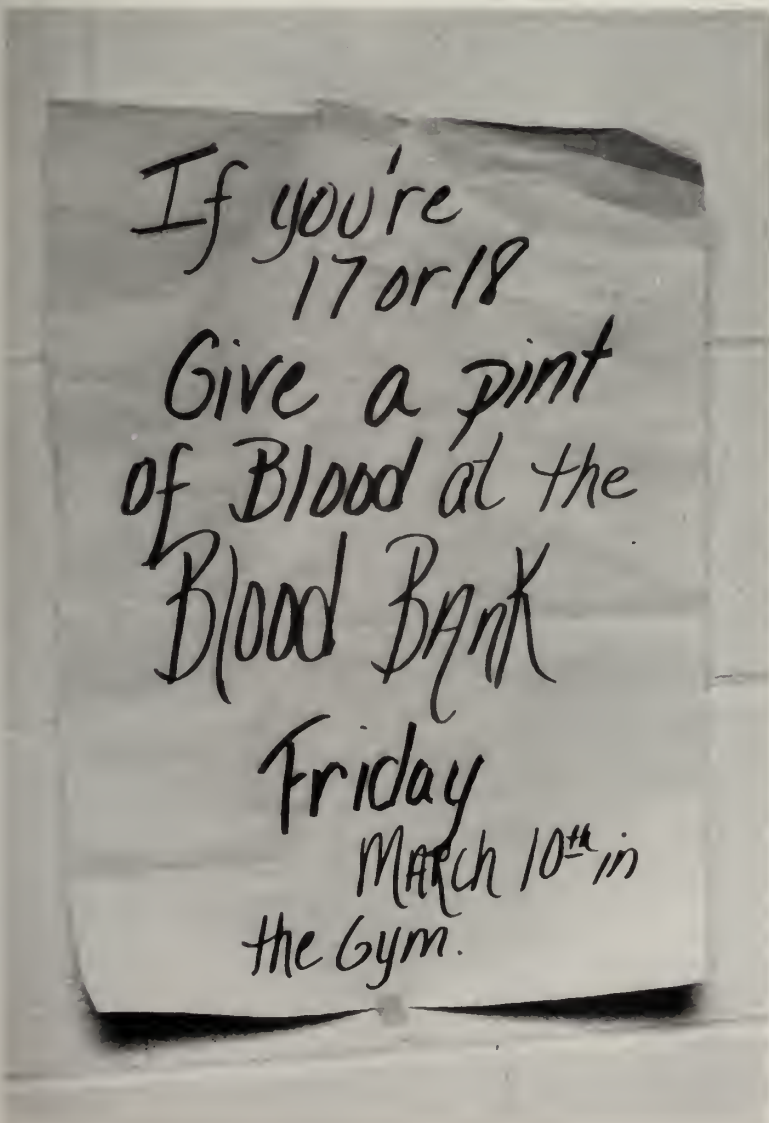 If you're
17 or 18
Give a pint
of Blood at the
Blood BAnK
Friday
MARch 10th in
the Gym.